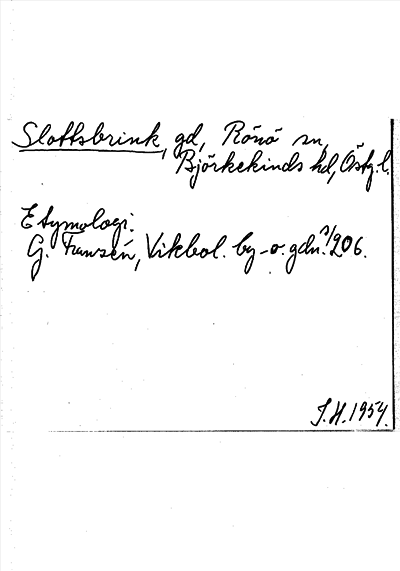 Slottsbrink, gd, Rönö sn,
Björkekinds hd, Östg.l.
Etymologi.
G. Franzén, Vikbol. by- o. gdn. s/206.
J.H. 1954.